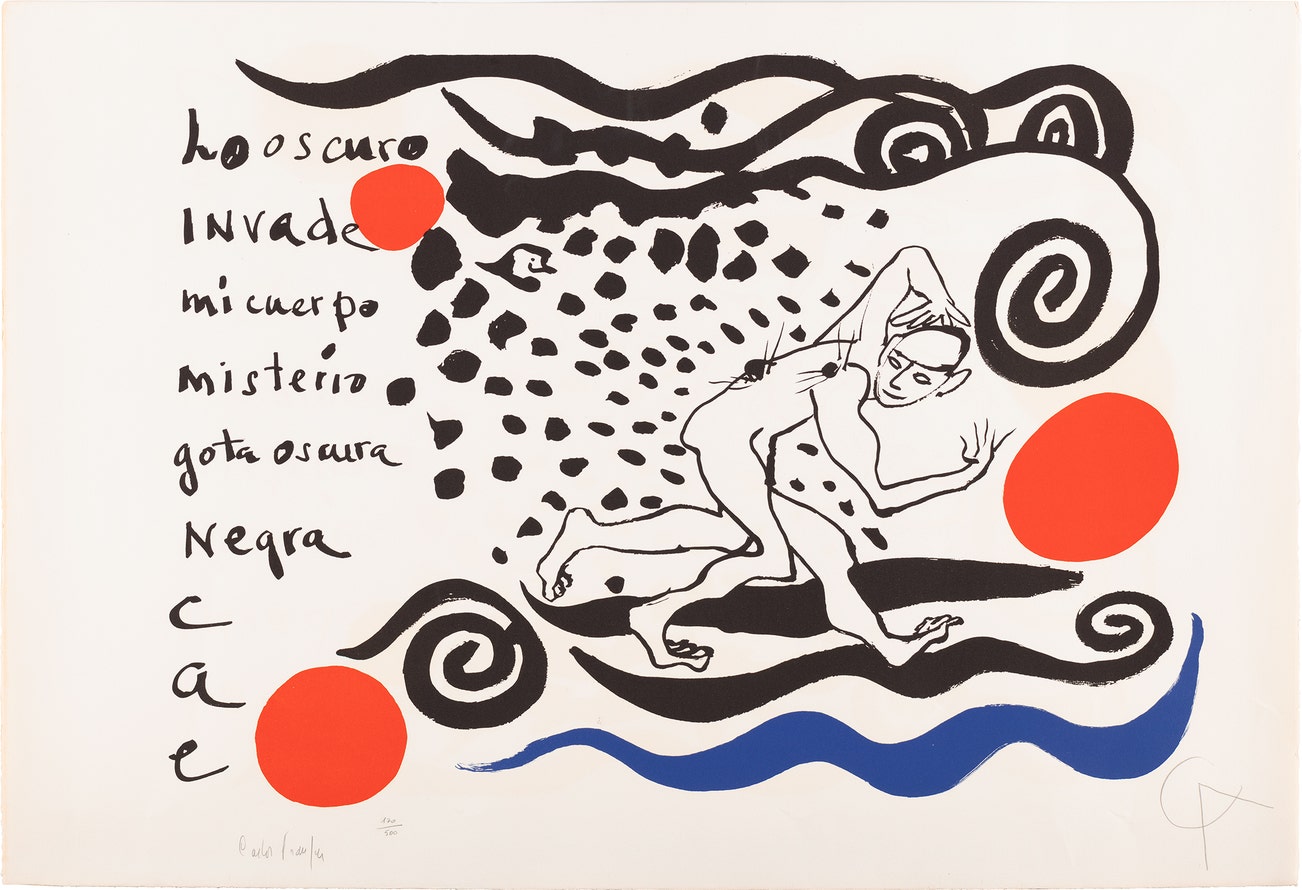 Lo oscuro
INVade
mi cuerpo
misterio
gota oscura
Negra
c
a
e
120/500
Carlos